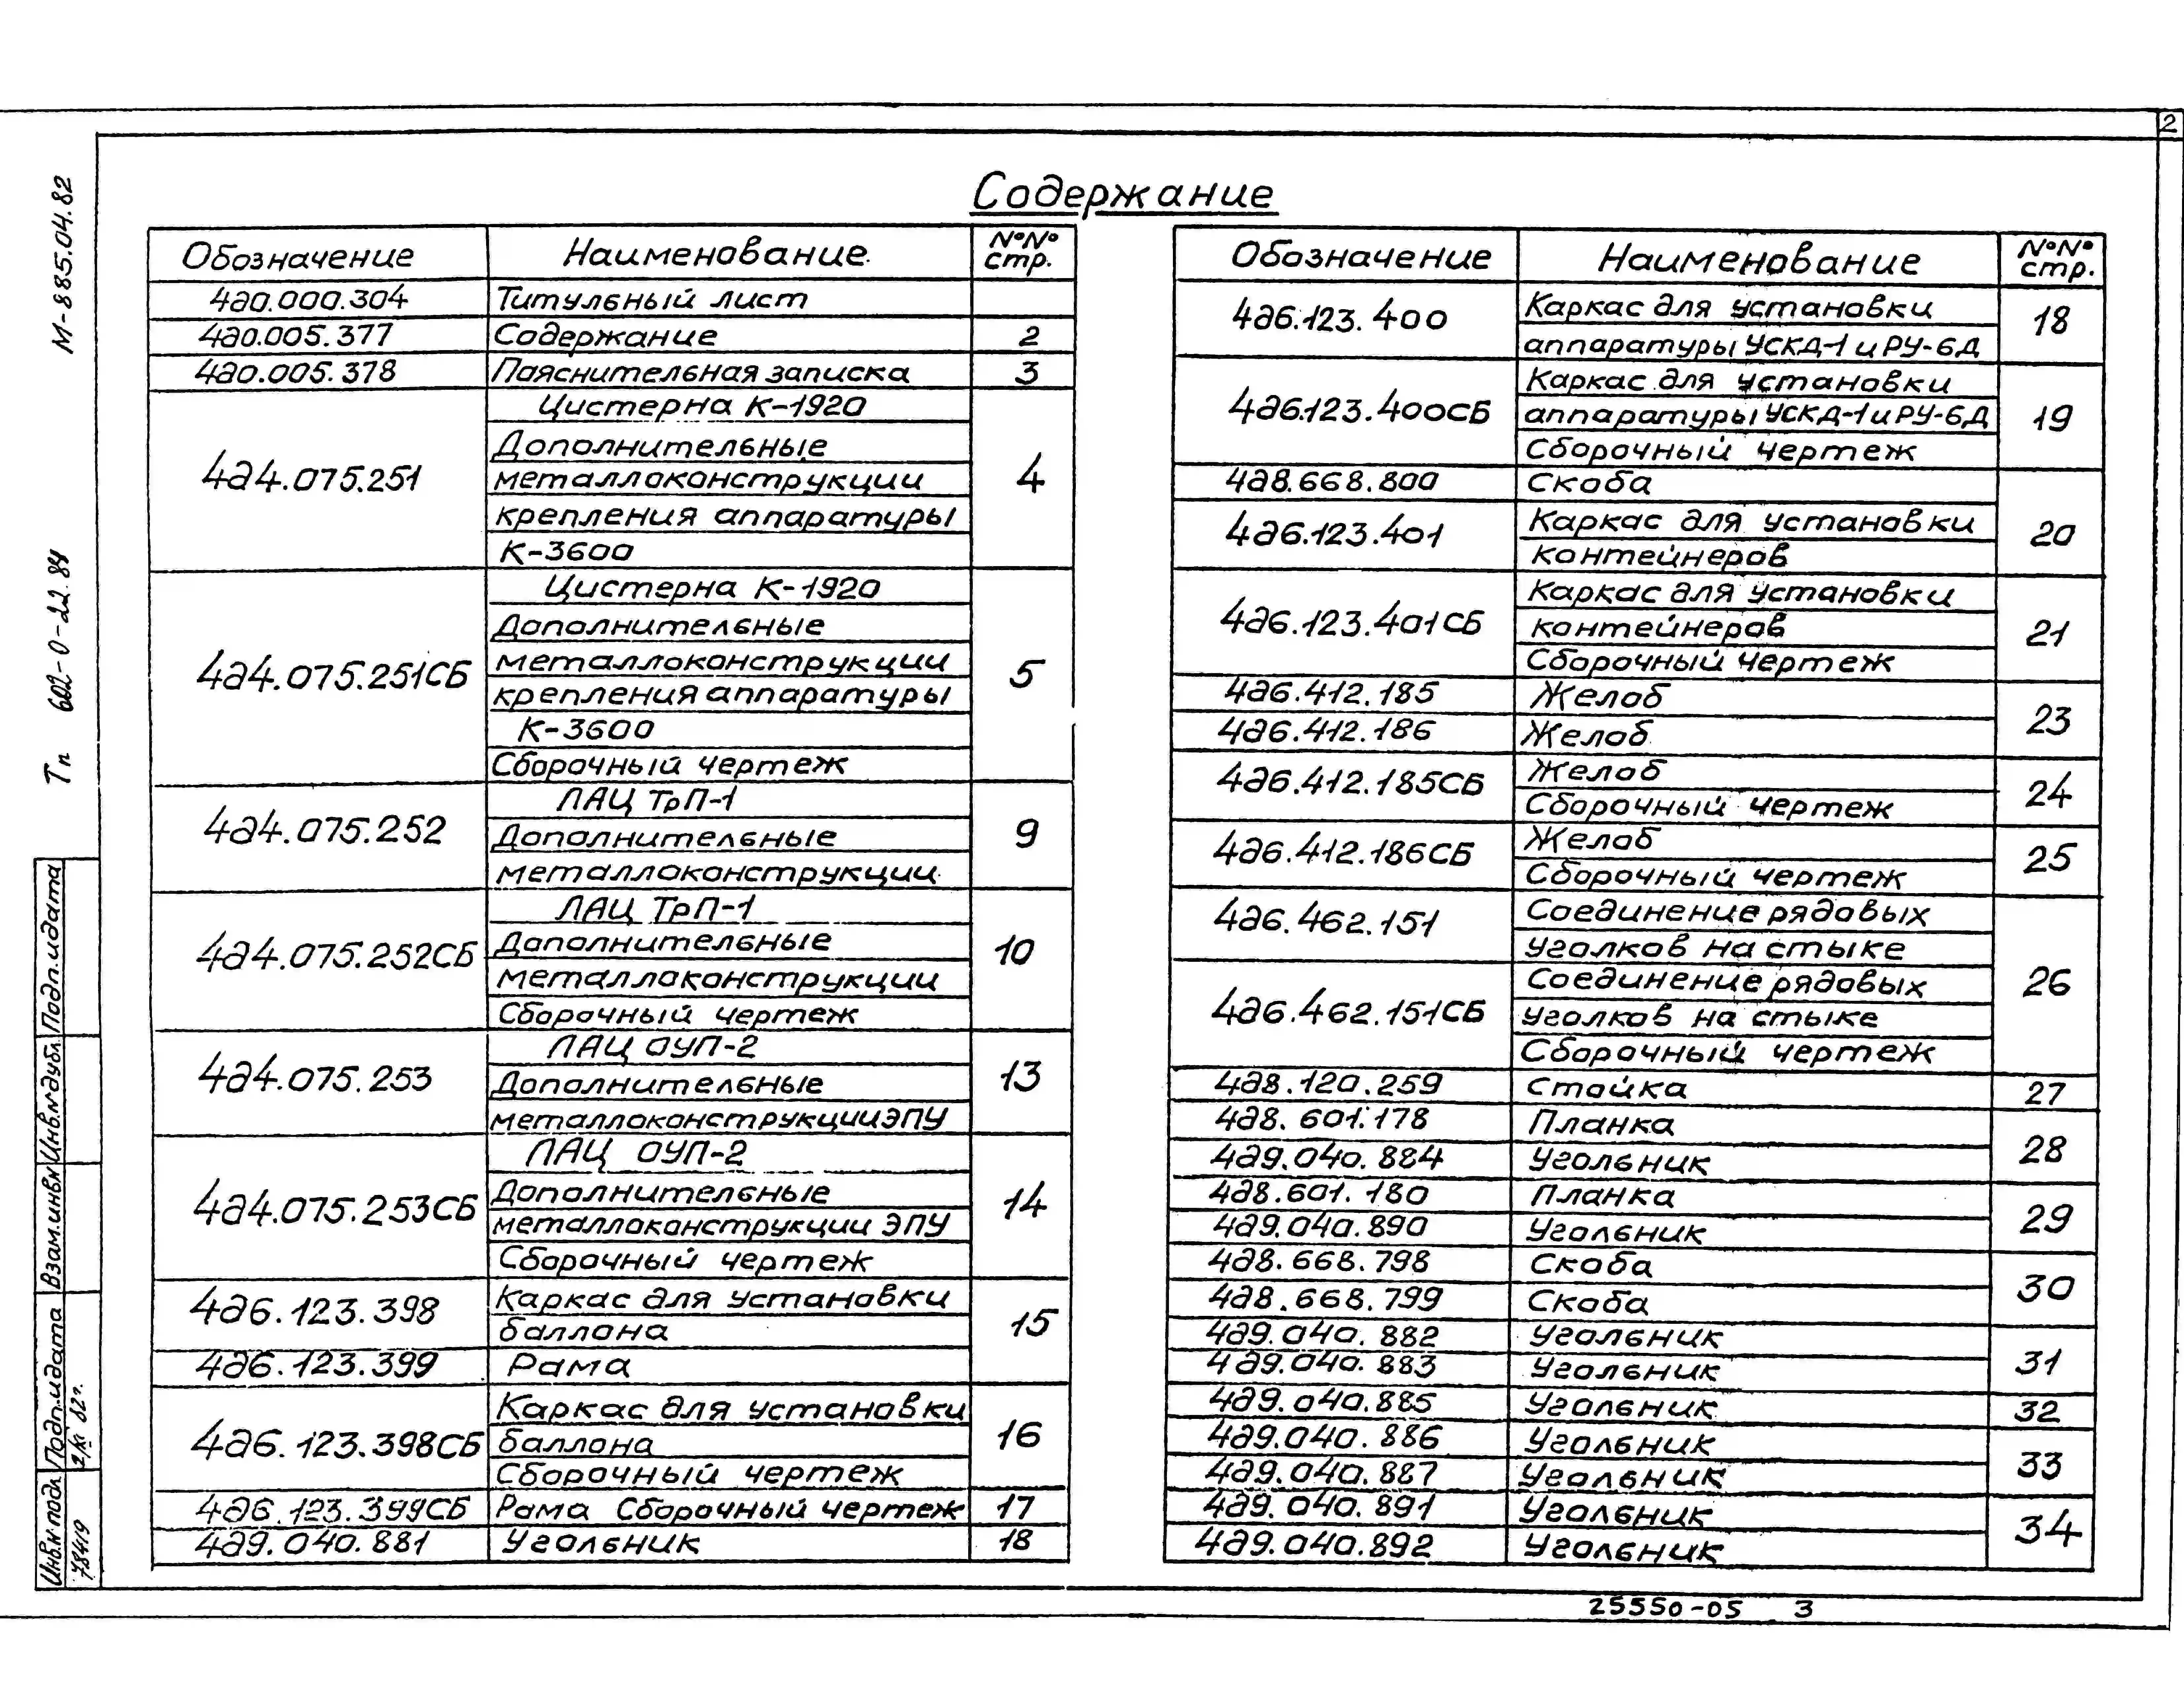 2
Содержание
М-885.04.82
Тп 602-0-22.84
Обозначение Наименование №№ стр.
4д0.000.304 Титульный лист
4д0.005.377 Содержание 2
4д0.005.378 Пояснительная записка 3
4д4.075.251 Цистерна К-1920 4
Дополнительные
металлоконструкции
крепления аппаратуры
К-3600
4д4.075.251СБ Цистерна К-1920 5
Дополнительные
металлоконструкции
крепления аппаратуры
К-3600
Сборочный чертеж
4д4.075.252 ЛАЦ ТрП-1 9
Дополнительные
металлоконструкции
4д4.075.252СБ ЛАЦ ТрП-1 10
Дополнительные
металлоконструкции
Сборочный чертеж
4д4.075.253 ЛАЦ ОУП-2 13
Дополнительные
металлоконструкции ЭПУ
4д4.075.253СБ ЛАЦ ОУП-2 14
Дополнительные
металлоконструкции ЭПУ
Сборочный чертеж
4д6.123.398 Каркас для установки 15
баллона
4д6.123.399 Рама
4д6.123.398СБ Каркас для установки 16
баллона
Сборочный чертеж
4д6.123.399СБ Рама Сборочный чертеж 17
4д9.040.881 Угольник 18
Обозначение Наименование №№ стр.
4д6.123.400 Каркас для установки 18
аппаратуры УСКД-1 и РУ-6Д
4д6.123.400СБ Каркас для установки 19
аппаратуры УСКД-1 и РУ-6Д
Сборочный чертеж
4д8.668.800 Скоба 20
4д6.123.401 Каркас для установки
контейнеров
4д6.123.401СБ Каркас для установки 21
контейнеров
Сборочный чертеж
4д6.412.185 Желоб 23
4д6.412.186 Желоб
4д6.412.185СБ Желоб 24
Сборочный чертеж
4д6.412.186СБ Желоб 25
Сборочный чертеж
4д6.462.151 Соединение рядовых 26
уголков на стыке
4д6.462.151СБ Соединение рядовых
уголков на стыке
Сборочный чертеж
4д8.120.259 Стойка 27
4д8.601.178 Планка 28
4д9.040.884 Угольник
4д8.601.180 Планка 29
4д9.040.890 Угольник
4д8.668.798 Скоба 30
4д8.668.799 Скоба
4д9.040.882 Угольник 31
4д9.040.883 Угольник
4д9.040.885 Угольник 32
4д9.040.886 Угольник 33
4д9.040.887 Угольник
4д9.040.891 Угольник 34
4д9.040.892 Угольник
Подп. и дата
Инв.№ дубл.
Взам.инв.№
Подп. и дата
Инв.№ подл.
78419
25550-05 3